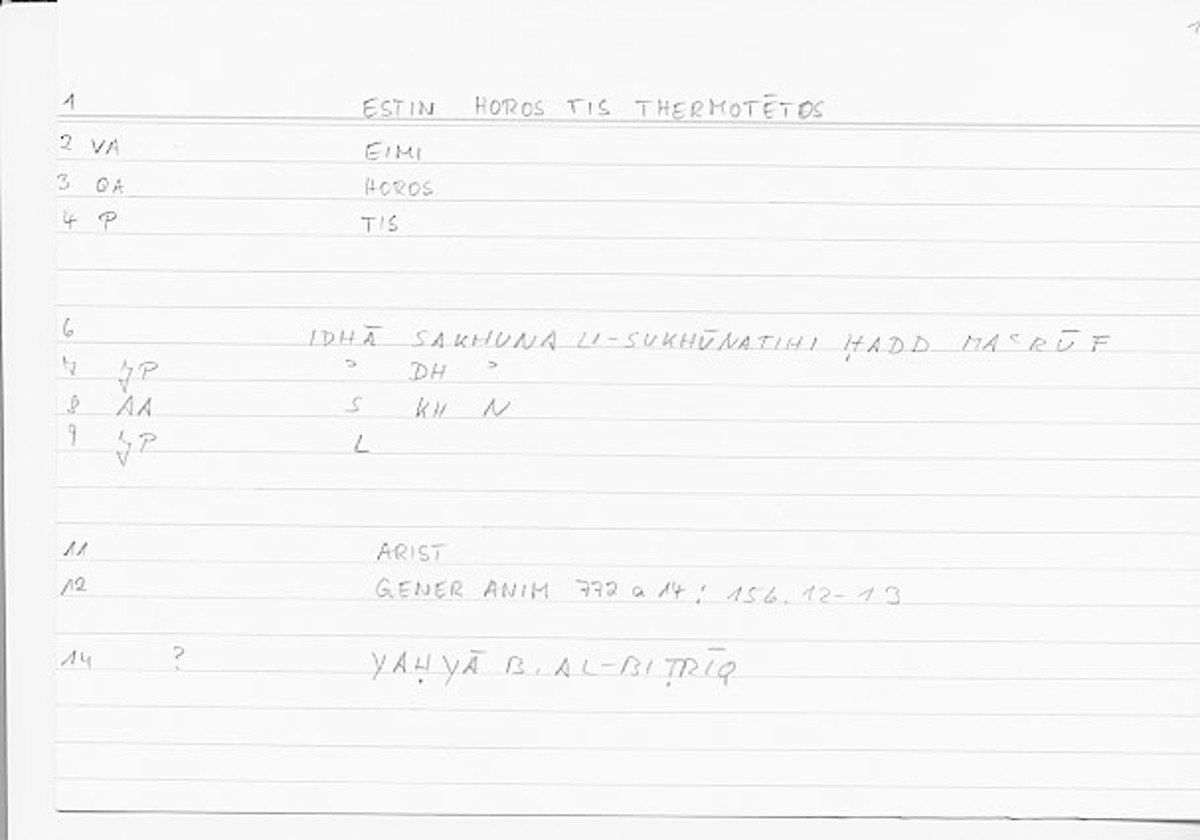 1
1 ESTIN HOROS TIS THERMOTĒTOS
2 VA EIMI
3 QA HOROS
4 P TIS
6 IDHĀ SAKHUNA LI-SUKHŪNATIHI ḤADD MAʿRŪF
7 JP ʾ DH ʾ
8 AA S KH N
9 JP L
11 ARIST
12 GENER ANIM 772 a 14 ; 156. 12-13
14 ? YAḤYĀ B. AL-BIṬRĪQ